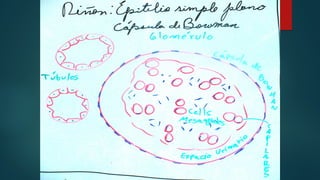 Riñon: Epitilio simple plano
Cápsula de Bowman
Glomérulo
Cápsula de BOWMAN
Túbulos
Cells
Mesangiales
Espacio Urinario
CAPILARES